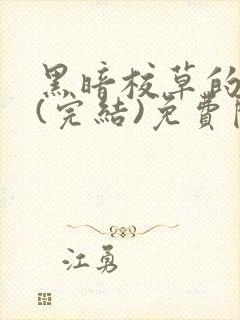 黑暗校草的
(完結)免費
江勇